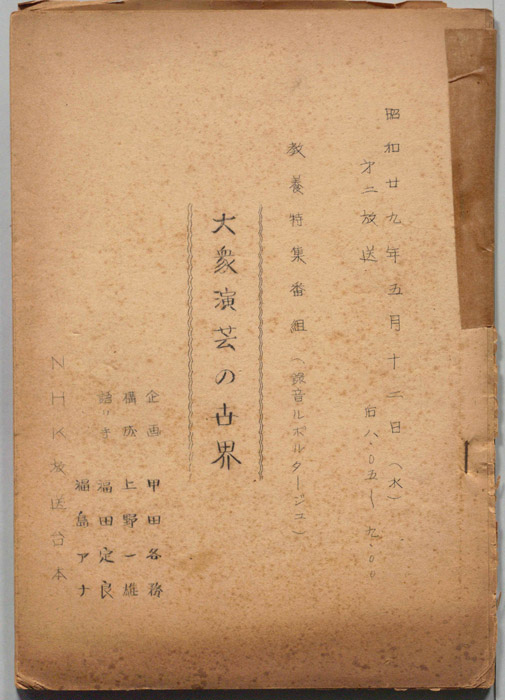 昭和廿九年五月十二日(水)
才二放送 后八.〇五〜九.〇〇
教養特集番組(録音ルポルタージュ)
大衆演芸の古界
企画 甲田各務
構成 上野一雄
語り手 福田定良
福島アナ
NHK放送台本